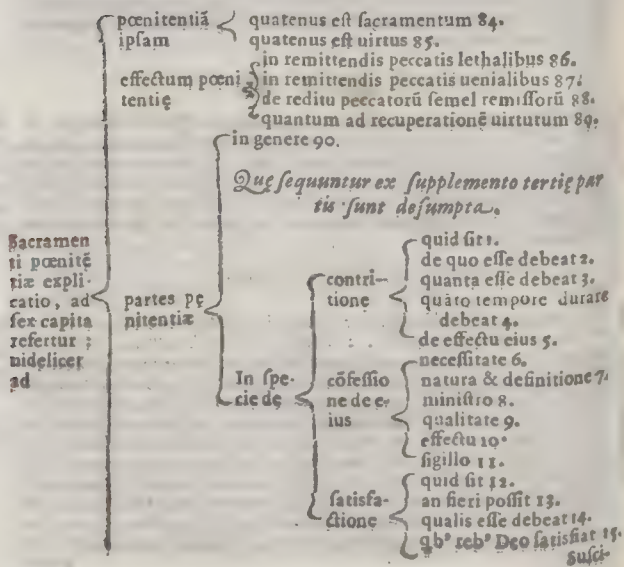 Sacramen
ti pœnitẽ
tiæ expli-
catio, ad
sex capita
refertur ;
uidelicer
ad
pœnitentiã
ipsam
quatenus est sacramentum 84.
quatenus est uirtus 85.
effectum pœni
tentię
in remittendis peccatis lethalibus 86.
in remittendis peccatis uenialibus 87.
de reditu peccatorũ semel remissorũ 88.
quantum ad recuperationẽ uirtutum 89.
partes pę
nitentiæ
in genere 90.
Quę sequuntur ex supplemento tertię par
tis sunt desumpta.
In spe-
cie de
contri-
tione
quid sit 1.
de quo esse debeat 2.
quanta esse debeat 3.
quãto tempore durare
debeat 4.
de effectu eius 5.
cõfessio
ne de e-
ius
necessitate 6.
natura & definitione 7.
ministro 8.
qualitate 9.
effectu 10.
sigillo 11.
satisfa-
ctione
quid sit 12.
an fieri possit 13.
qualis esse debeat 14.
qb' reb' Deo satisfiat 15.
Susci-